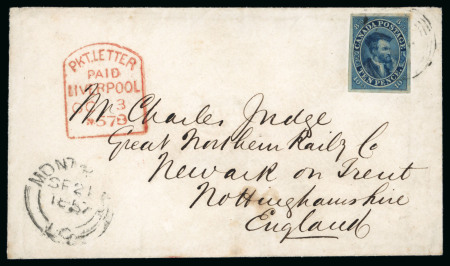 CANADA POSTAGE
TEN PENCE
PKT. LETTER
PAID
LIVERPOOL
3
57
Mr Charles Judge
Great Northern Raily Co
Newark on Trent
Nottinghamshire
England
SP 21
1857